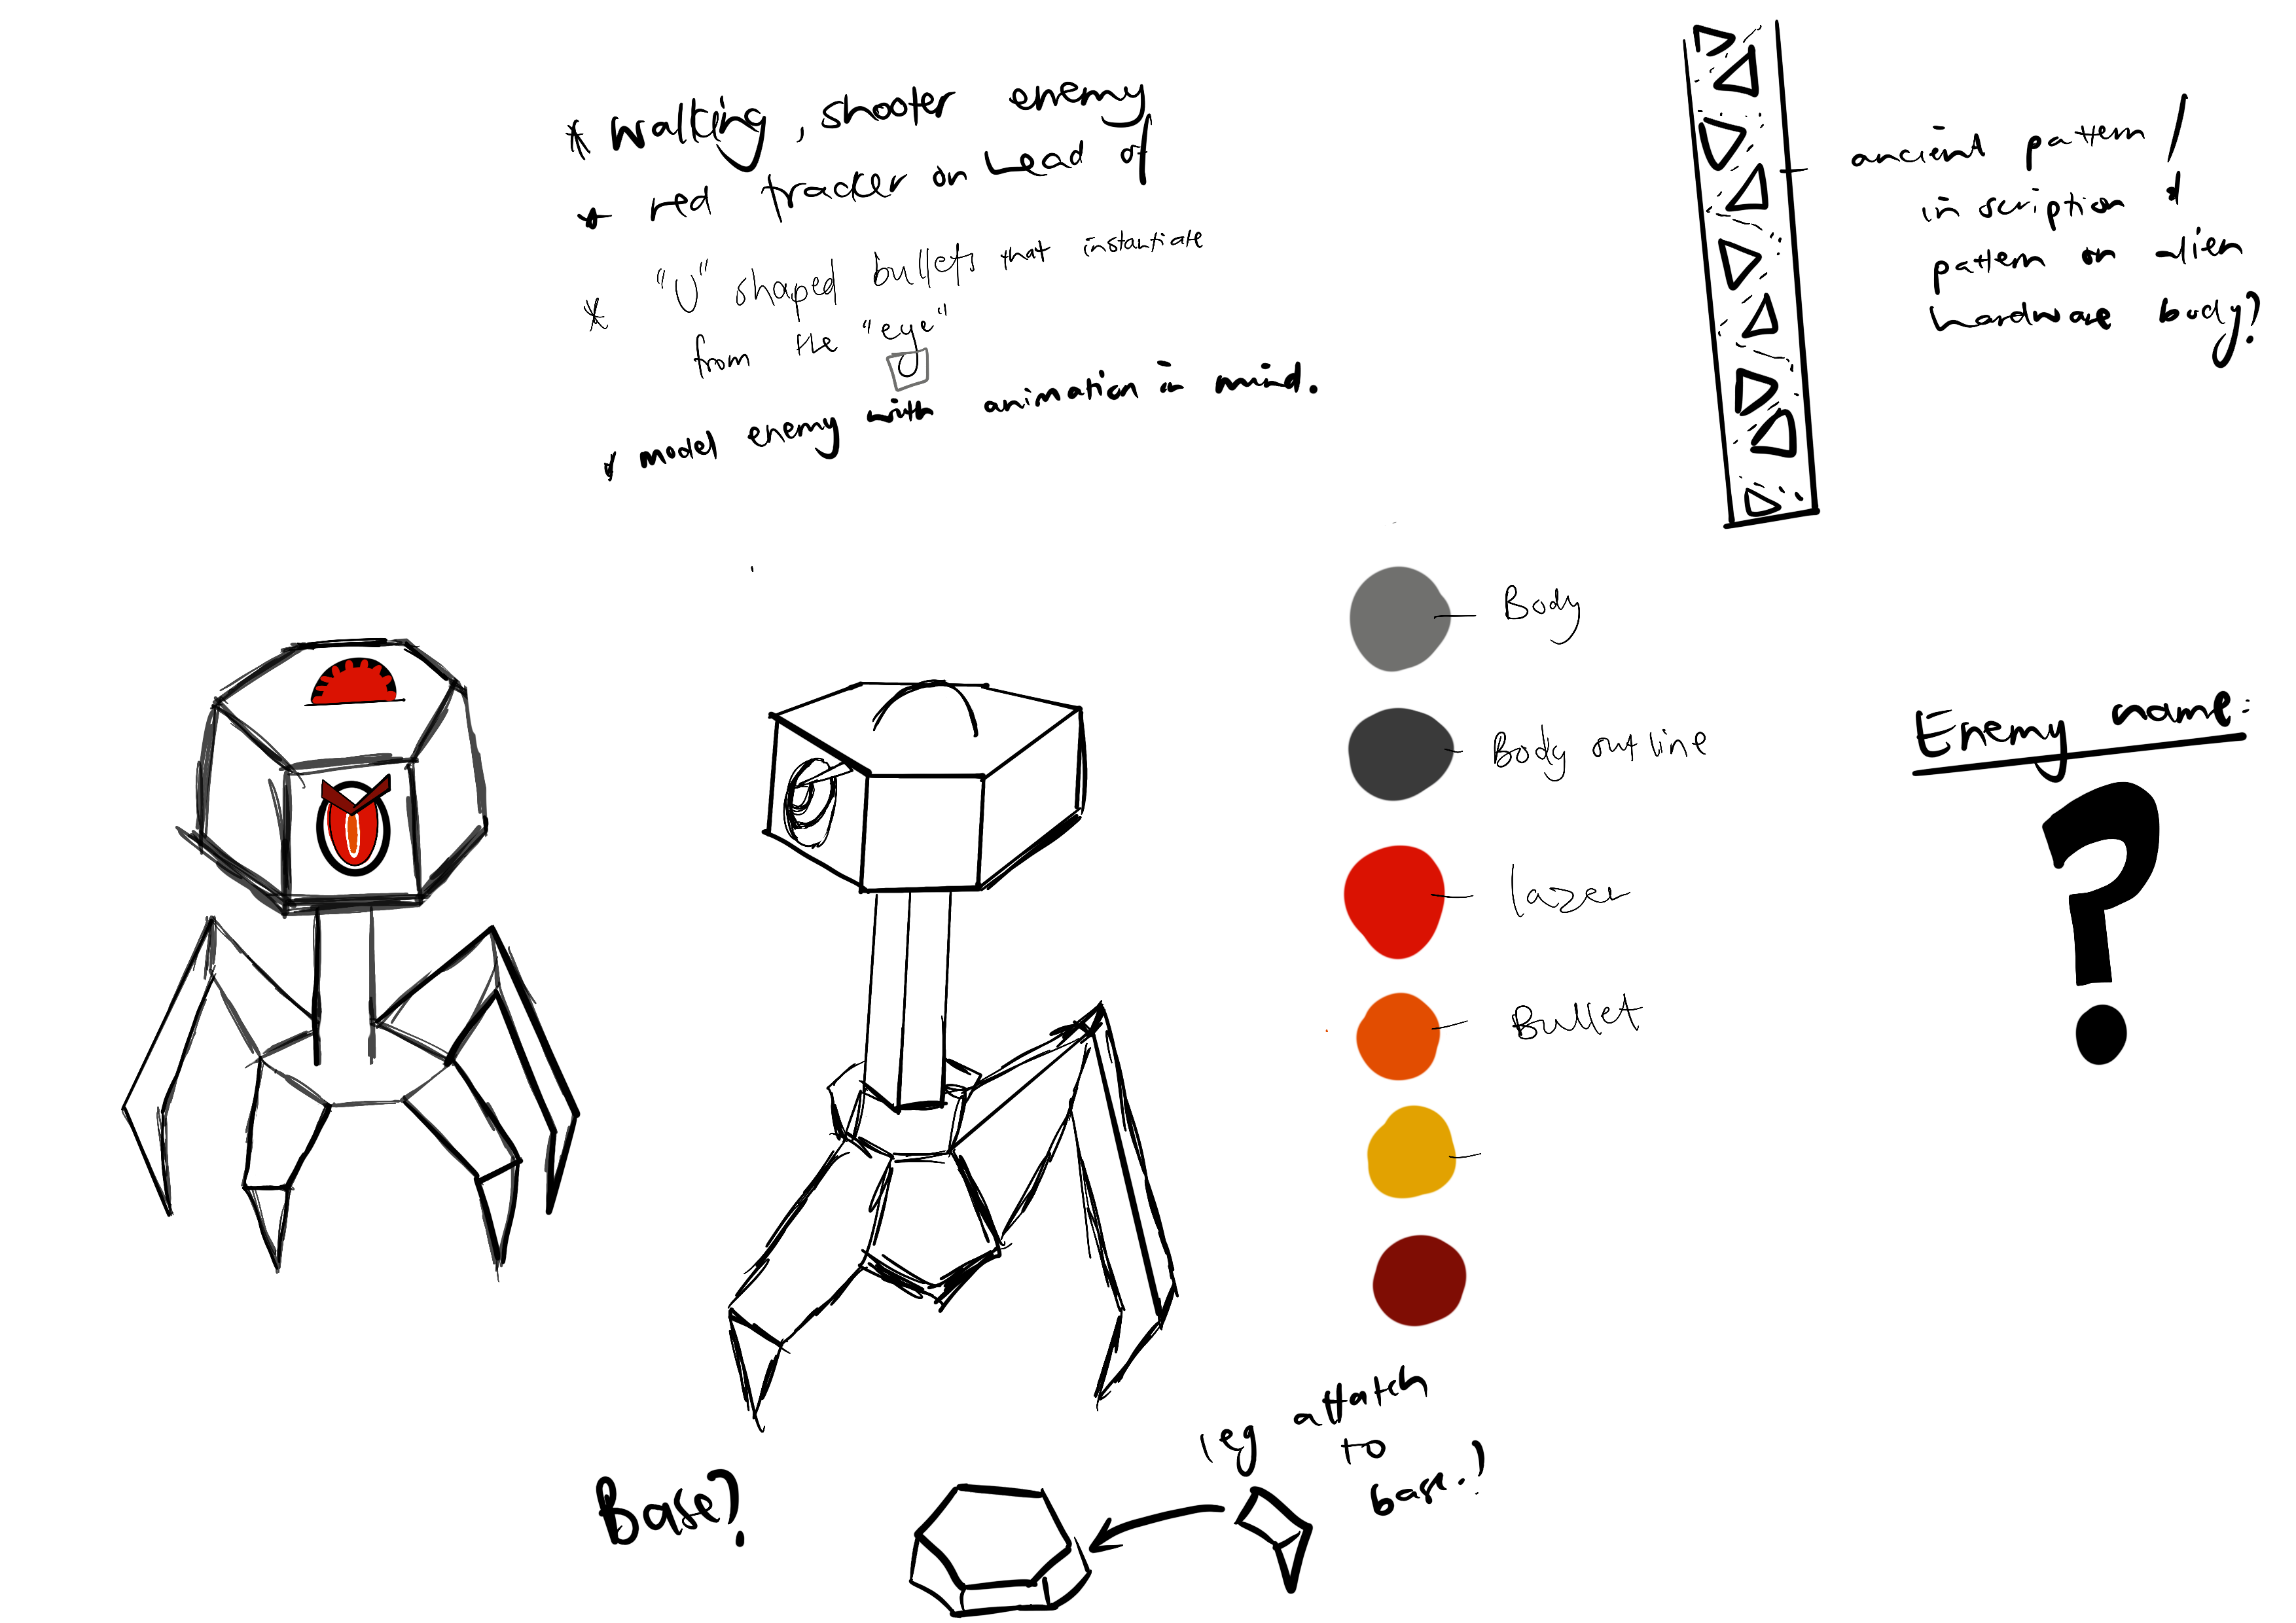 * walking, shooter enemy
* red tracker on head of
* "U" shaped bullets that instantiate
from the "eye"
* model enemy with animation in mind.
ancient pattern /
inscription &
pattern on alien
hardware body?
Body
Body outline
lazer
Bullet
Enemy name:
?
leg attatch
to
base?
Base?